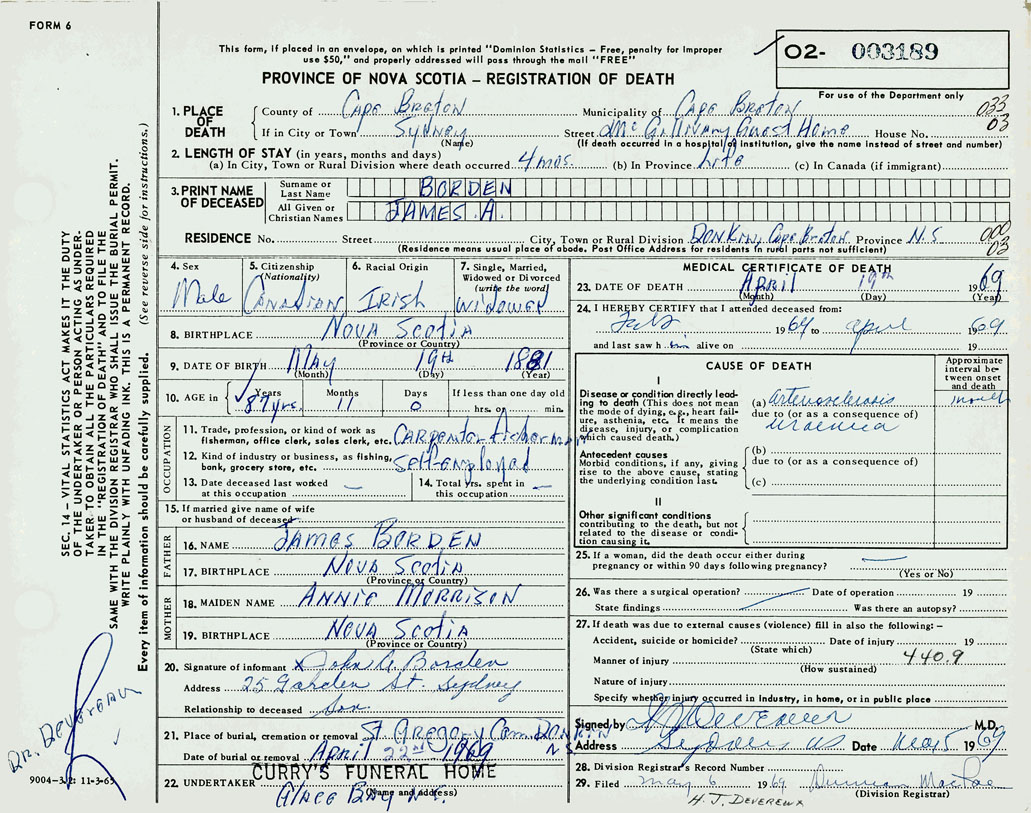 FORM 6
This form, if placed in an envelope, on which is printed "Dominion Statistics – Free, penalty for improper
use $50," and properly addressed will pass through the mail "FREE"
O2- 003189
PROVINCE OF NOVA SCOTIA – REGISTRATION OF DEATH
For use of the Department only
1. PLACE OF DEATH
County of Cape Breton Municipality of Cape Breton 033
If in City or Town Sydney Street McGillivary Guest Home House No. 03
(Name) (If death occurred in a hospital or institution, give the name instead of street and number)
2. LENGTH OF STAY (in years, months and days)
(a) In City, Town or Rural Division where death occurred 4 mos. (b) In Province Life (c) In Canada (if immigrant)
3. PRINT NAME OF DECEASED
Surname or Last Name BORDEN
All Given or Christian Names JAMES A.
RESIDENCE No. Street City, Town or Rural Division Donkin, Cape Breton Province N.S 000
(Residence means usual place of abode. Post Office Address for residents in rural parts not sufficient) 03
4. Sex Male
5. Citizenship (Nationality) Canadian
6. Racial Origin Irish
7. Single, Married, Widowed or Divorced (write the word) Widower
8. BIRTHPLACE Nova Scotia
(Province or Country)
9. DATE OF BIRTH May 19th 1881
(Month) (Day) (Year)
10. AGE in Years 87 yrs. Months 11 Days 0 If less than one day old hrs. or min.
OCCUPATION
11. Trade, profession, or kind of work as fisherman, office clerk, sales clerk, etc. Carpenter Fisherman
12. Kind of industry or business, as fishing, bank, grocery store, etc. self-employed
13. Date deceased last worked at this occupation —
14. Total yrs. spent in this occupation —
15. If married give name of wife or husband of deceased
FATHER
16. NAME James Borden
17. BIRTHPLACE Nova Scotia
(Province or Country)
MOTHER
18. MAIDEN NAME Annie Morrison
19. BIRTHPLACE Nova Scotia
(Province or Country)
20. Signature of informant x John A. Borden
Address 25 Garden St. Sydney
Relationship to deceased Son
21. Place of burial, cremation or removal St Gregory Cem. Donkin N.S.
Date of burial or removal April 22nd 1969
22. UNDERTAKER CURRY'S FUNERAL HOME
(Name and address)
Glace Bay N.S.
MEDICAL CERTIFICATE OF DEATH
23. DATE OF DEATH April 19th 1969
(Month) (Day) (Year)
24. I HEREBY CERTIFY that I attended deceased from:
Feb 1969 to April 1969
and last saw h im alive on 19
CAUSE OF DEATH
Approximate interval between onset and death
I
Disease or condition directly leading to death (This does not mean the mode of dying, e.g., heart failure, asthenia, etc. It means the disease, injury, or complication which caused death.)
(a) Arteriosclerosis
due to (or as a consequence of)
uraemia
Antecedent causes
Morbid conditions, if any, giving rise to the above cause, stating the underlying condition last.
(b)
due to (or as a consequence of)
(c)
II
Other significant conditions
contributing to the death, but not related to the disease or condition causing it.
25. If a woman, did the death occur either during pregnancy or within 90 days following pregnancy?
(Yes or No)
26. Was there a surgical operation? Date of operation 19
State findings Was there an autopsy?
27. If death was due to external causes (violence) fill in also the following: –
Accident, suicide or homicide? Date of injury 19
(State which)
Manner of injury 440.9
(How sustained)
Nature of injury
Specify whether injury occurred in industry, in home, or in public place
Signed by HJ Devereux M.D.
Address Sydney NS Date May 5 1969
28. Division Registrar's Record Number
29. Filed May 6 1969
(Division Registrar)
H. J. DEVEREUX
SEC. 14 – VITAL STATISTICS ACT MAKES IT THE DUTY
OF THE UNDERTAKER OR PERSON ACTING AS UNDER-
TAKER TO OBTAIN ALL THE PARTICULARS REQUIRED
IN THE "REGISTRATION OF DEATH" AND TO FILE THE
SAME WITH THE DIVISION REGISTRAR WHO SHALL ISSUE THE BURIAL PERMIT.
WRITE PLAINLY WITH UNFADING INK. THIS IS A PERMANENT RECORD.
Every item of information should be carefully supplied. (See reverse side for instructions.)
DR. DEVEREAU
9004-3,2: 11-3-65